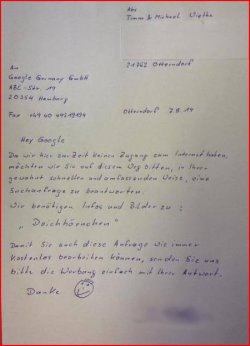 Abs
Timm & Michael Wiethe
An
Google Germany GmbH
ABC-Str. 19
20354 Hamburg
21762 Otterndorf
Fax +49 40 49219194
Otterndorf 7.8.14
Hey Google
Da wir hier zur Zeit keinen Zugang zum Internet haben,
möchten wir Sie auf diesem Weg bitten, in Ihrer
gewohnt schnellen und umfassenden Weise, eine
Suchanfrage zu beantworten.
Wir benötigen Infos und Bilder zu:
„Deichhörnchen"
Damit Sie auch diese Anfrage wie immer
kostenlos bearbeiten können, senden Sie uns
bitte die Werbung einfach mit Ihrer Antwort.
Danke